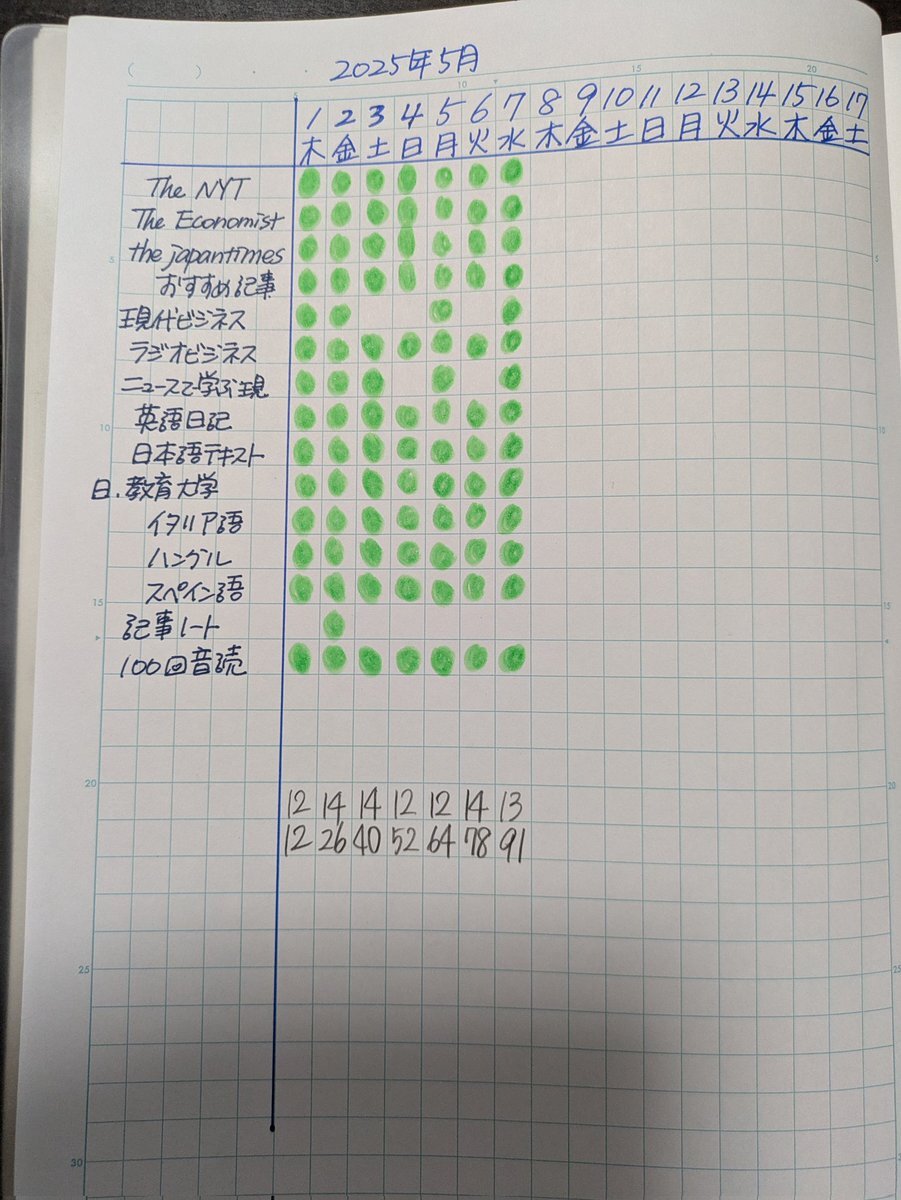 ( ) 2025年5月
5 10 15 20
1 2 3 4 5 6 7 8 9 10 11 12 13 14 15 16 17
木 金 土 日 月 火 水 木 金 土 日 月 火 水 木 金 土
The NYT
The Economist
the japantimes
5 5
おすすめ記事
現代ビジネス
ラジオビジネス
ニュースで学ぶ現
英語日記
10 10
日本語テキスト
日.教育大学
イタリア語
ハングル
スペイン語
15 15
記事ノート
100回音読
20 20
12 14 14 12 12 14 13
12 26 40 52 64 78 91
25 25
30